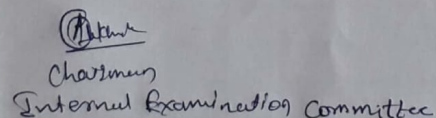 Chairman
Internal Examination Committee